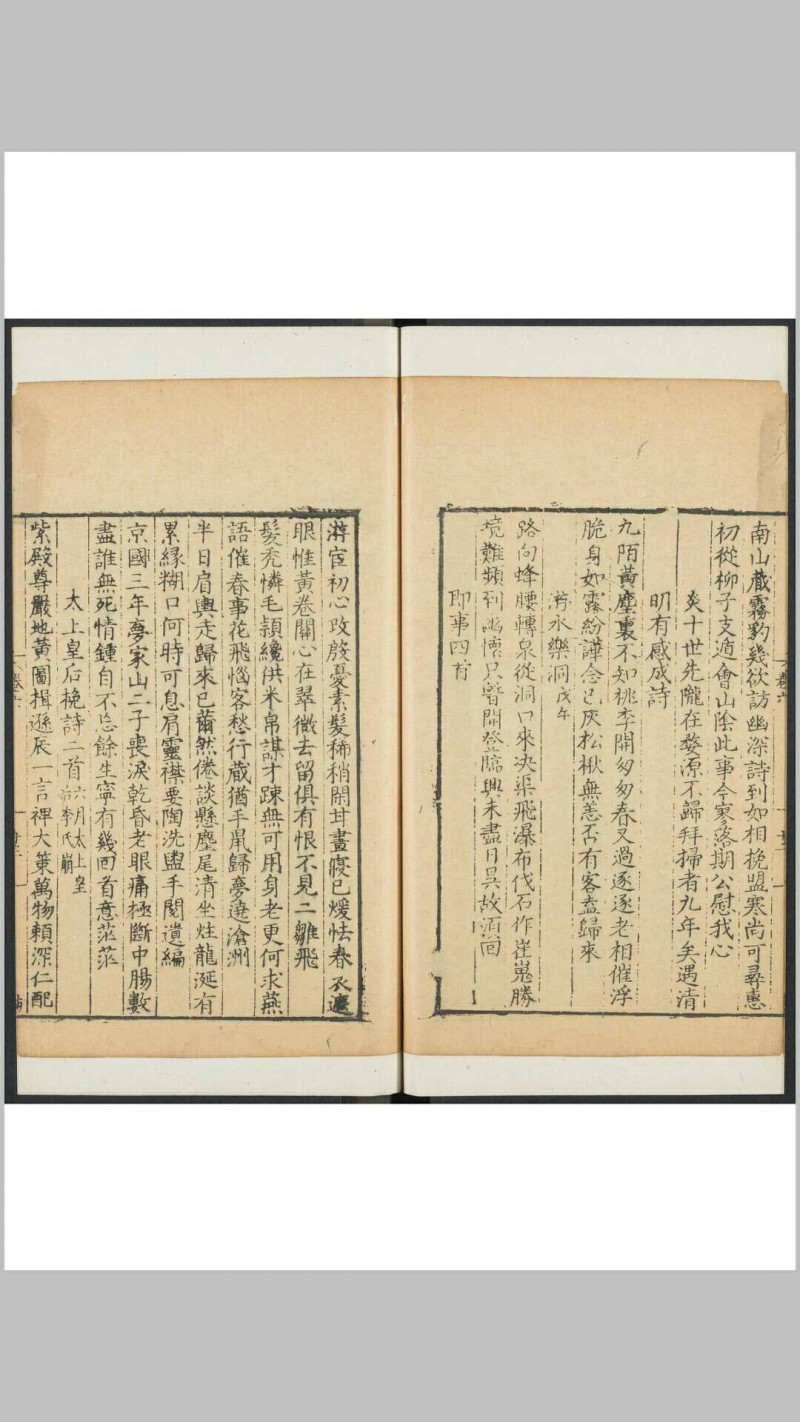 南山藏霧豹幾欲訪幽深詩到如相挽盟寒尚可尋惠
初從柳子支遁會山陰此事今寥落期公慰我心
炎十世先隴在婺源不歸拜掃者九年矣遇清
明有感成詩
九陌黃塵裏不知桃李開匆匆春又過逐逐老相催浮
脆身如露紛譁念已灰松楸無恙否有客盍歸來
游水樂洞戊午
路向蜂腰轉泉從洞口來決渠飛瀑布伐石作崔嵬勝
境難頻到幽懷只暫開登臨興未盡日昃故酒回
即事四首
游宦初心改殷憂素髮稀稍開甘晝寢已煖怯春衣遮
眼惟黃卷關心在翠微去留俱有恨不見二雛飛
髮禿憐毛穎纔供米帛謀才疎無可用身老更何求燕
語催春事花飛惱客愁行藏猶手鼠歸夢遶滄洲
半日肩輿走歸來已薾然倦談懸麈尾清坐炷龍涎有
累緣糊口何時可息肩靈襟要陶洗盥手閱遺編
京國三年夢家山二子喪淚乾昏老眼痛極斷中腸數
盡誰無死情鍾自不忘餘生寧有幾回首意茫茫
太上皇后挽詩二首六月太上皇后李氏崩
紫殿尊嚴地黃圖揖遜辰一言裨大策萬物賴深仁配
卷六